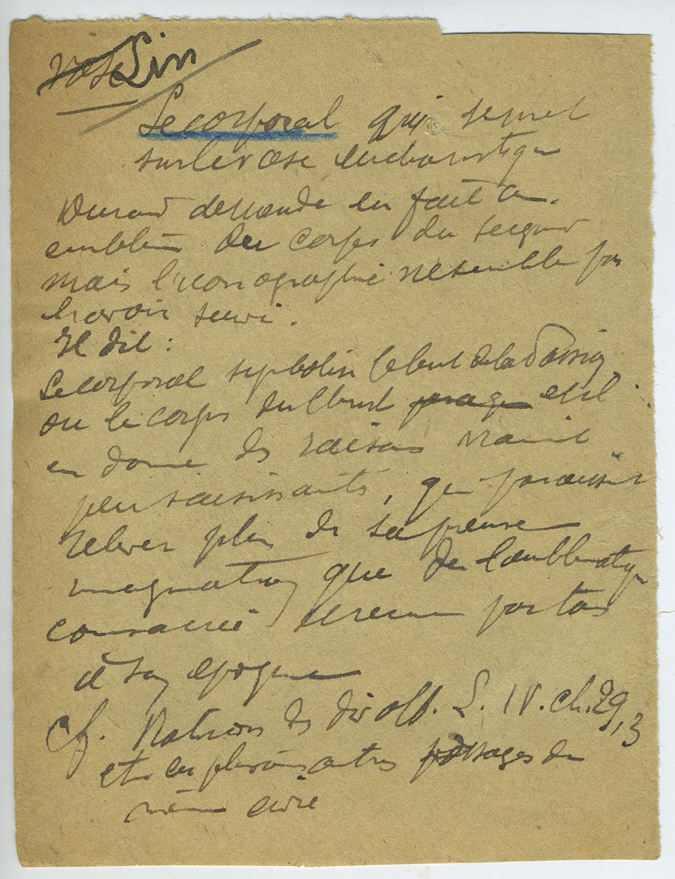 Lin
Le corporal qui se met
sur le vase eucharistique
Durand de Mende en fait un
emblème du corps du seigneur
mais l'iconographie ne semble pas
l'avoir suivi.
Il dit :
Le corporal symbolise le but de la Passion
ou le corps du Christ et il
en donne des raisons vraiment
peu saisissantes, qui paraissent
relever plus de sa pieuse
imagination que de l'emblématique
consacrée reconnue par tous
à son époque
cf. Rational des div off. L. IV. ch. 29, 3
et en plusieurs autres passages du
même livre